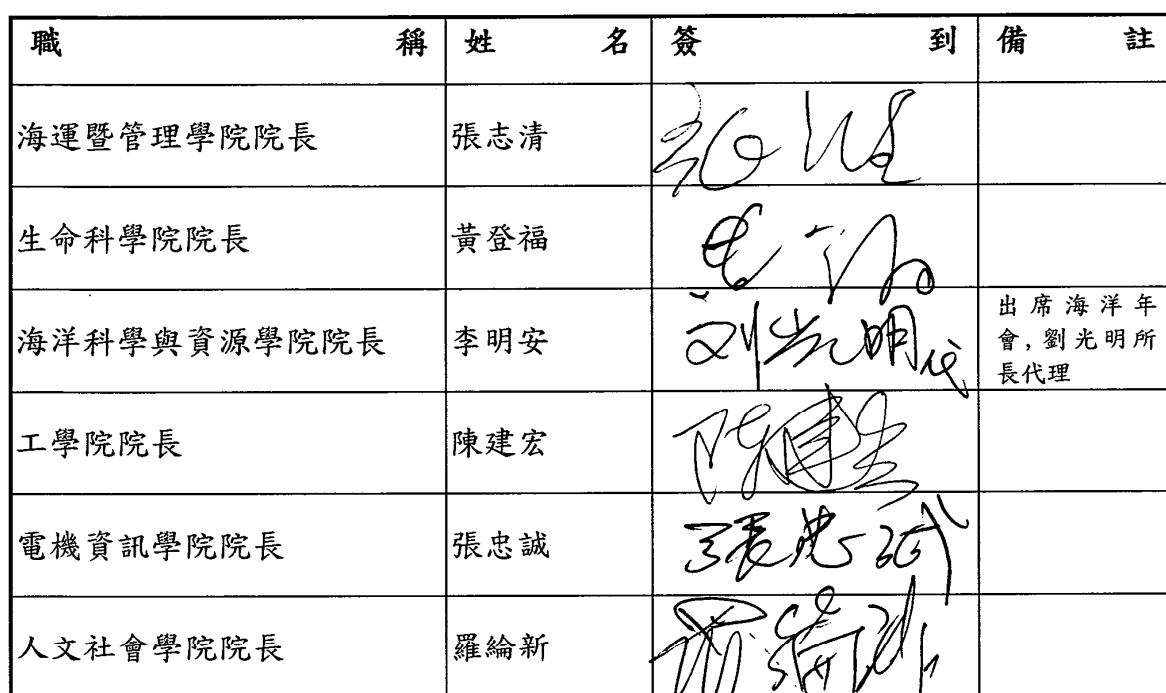 職稱 姓名 簽到 備註
海運暨管理學院院長 張志清
生命科學院院長 黃登福
海洋科學與資源學院院長 李明安 刘光明代 出席海洋年
會,劉光明所
長代理
工學院院長 陳建宏 陳建宏
電機資訊學院院長 張忠誠 張忠誠
人文社會學院院長 羅綸新 羅綸新